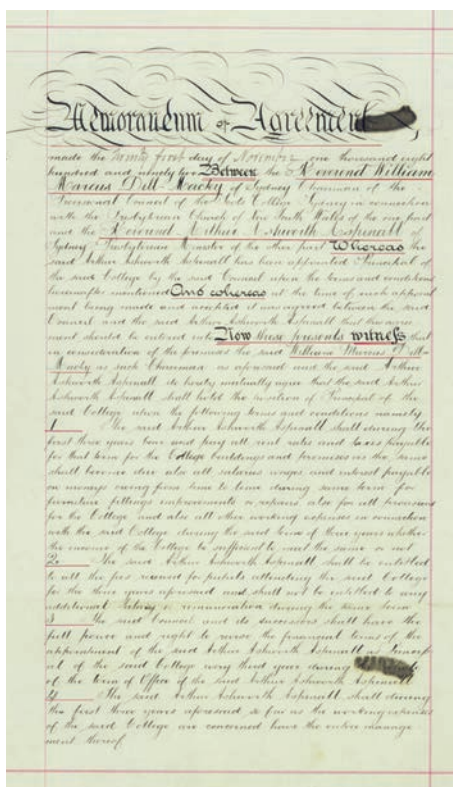 Memorandum of Agreement
made the twenty first day of November one thousand eight
hundred and ninety two Between the Reverend William
Marcus Dill-Macky of Sydney Chairman of the
Provisional Council of the Scots College Sydney in connection
with the Presbyterian Church of New South Wales of the one part
and the Reverend Arthur Ashworth Aspinall of
Sydney Presbyterian Minister of the other part Whereas the
said Arthur Ashworth Aspinall has been appointed Principal of
the said College by the said Council upon the terms and conditions
hereinafter mentioned And whereas at the time of such appoint
ment being made and accepted it was agreed between the said
Council and the said Arthur Ashworth Aspinall that this agree
ment should be entered into Now these presents witness that
in consideration of the premises the said William Marcus Dill
Macky as such Chairman as aforesaid and the said Arthur
Ashworth Aspinall do hereby mutually agree that the said Arthur
Ashworth Aspinall shall hold the position of Principal of the
said College upon the following terms and conditions namely
1 The said Arthur Ashworth Aspinall shall during the
first three years bear and pay all rent rates and taxes payable
for that term for the College buildings and premises as the same
shall become due also all salaries wages and interest payable
on moneys owing from time to time during same term for
furniture fittings improvements or repairs also for all provisions
for the College and also all other working expenses in connection
with the said College during the said term of three years whether
the income of the College be sufficient to meet the same or not
2 The said Arthur Ashworth Aspinall shall be entitled
to all the fees received for pupils attending the said College
for the three years aforesaid and shall not be entitled to any
additional salary or remuneration during the same term
3 The said Council and its successors shall have the
full power and right to revise the financial terms of the
appointment of the said Arthur Ashworth Aspinall as Princip
al of the said College every third year during
of the term of Office of the said Arthur Ashworth Aspinall
4 The said Arthur Ashworth Aspinall shall during
the first three years aforesaid so far as the working expenses
of the said College are concerned have the entire manage
ment thereof